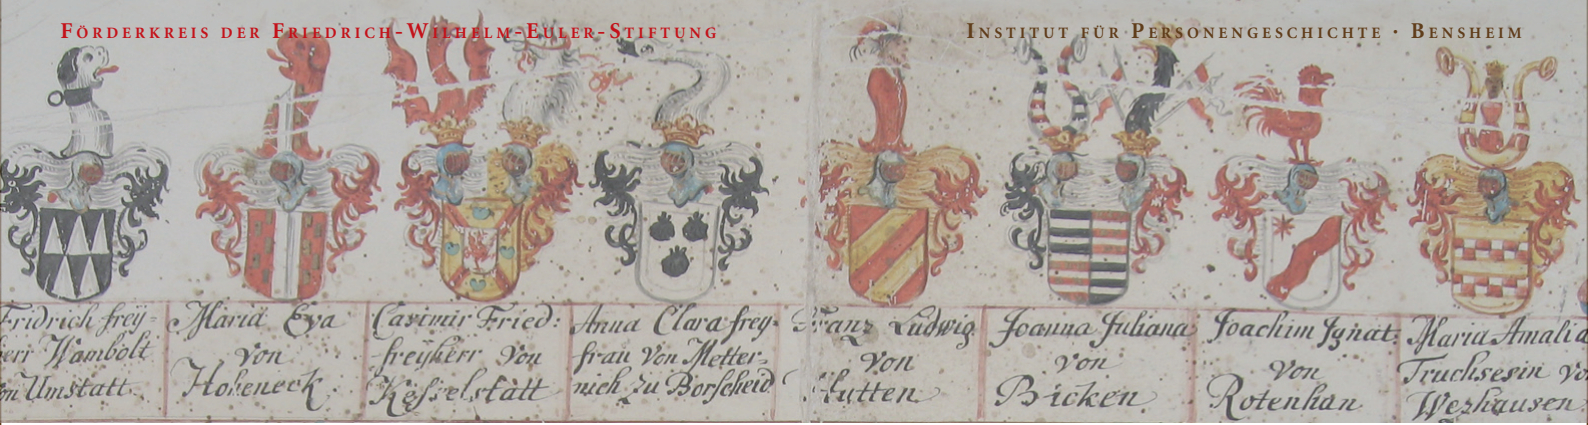 Förderkreis der Friedrich-Wilhelm-Euler-Stiftung
Institut für Personengeschichte · Bensheim
Fridrich frey=
herr Wambolt
von Umstatt
Maria Eva
von
Hoheneck
Casimir Fried:
freyherr von
Kesselstatt
Anna Clara frey-
frau von Metter-
nich zu Borscheid
Franz Ludwig
von
Hutten
Joanna Juliana
von
Bicken
Joachim Ignat:
von
Rotenhan
Maria Amalia
Truchsesin von
Wezhausen